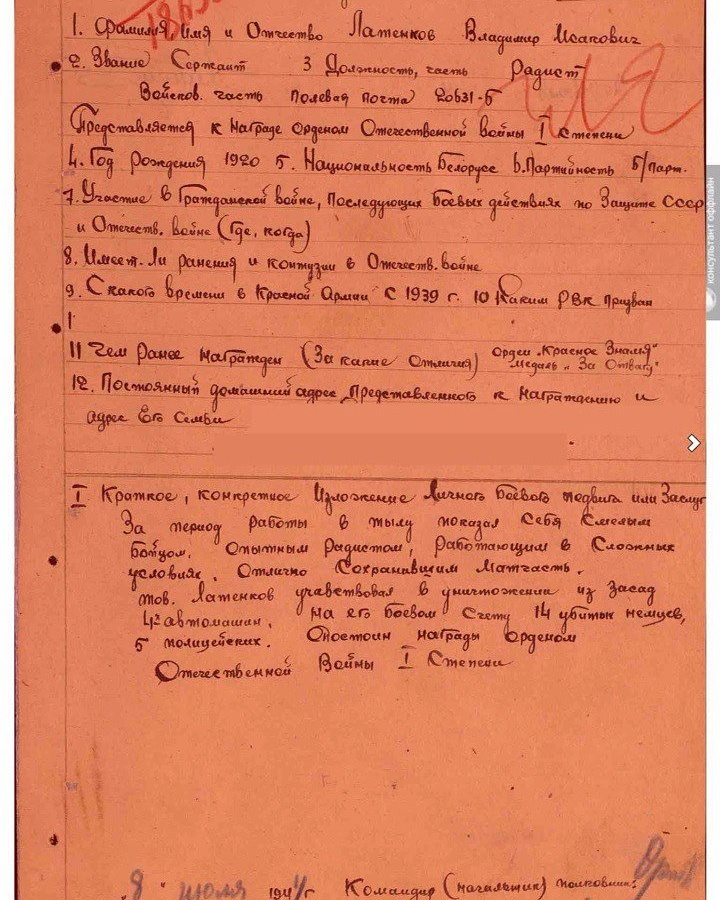 1. Фамилия, Имя и Отчество Латенков Владимир Исакович
2. Звание Сержант 3 Должность, часть Радист
Войсков. часть полевая почта 20631-Б
Представляется к награде орденом Отечественной войны I степени
4. Год рождения 1920 5. Национальность Белорусс 6. Партийность б/парт.
7. Участие в Гражданской войне, последующих боевых действиях по защите СССР
и Отечеств. войне (где, когда)
8. Имеет-ли ранения и контузии в Отечеств. войне
9. С какого времени в Красной Армии С 1939 г. 10 Каким РВК призван
11 Чем ранее награжден (за какие отличия) орден „Красное Знамя"
медаль „За Отвагу"
12. Постоянный домашний адрес представленного к награждению и
адрес его семьи
I Краткое, конкретное изложение личного боевого подвига или заслуг
За период работы в тылу показал себя смелым
бойцом, опытным радистом, работающим в сложных
условиях. Отлично сохранившим матчасть.
тов. Латенков учавствовал в уничтожении из засад
4х автомашин, на его боевом счету 14 убитых немцев,
5 полицейских. Достоин награды орденом
Отечественной Войны I степени
„8" июля 1944г Командир (начальник) полковник:
консультант оффлайн